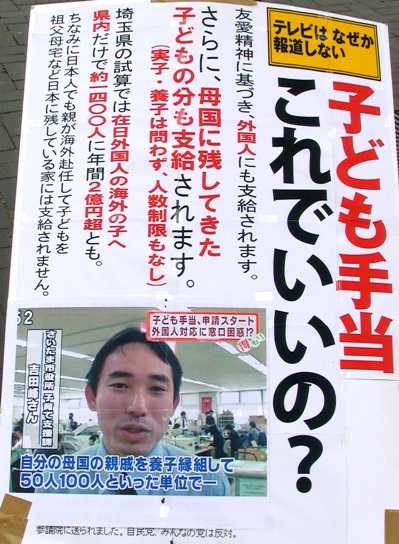 テレビは なぜか
報道しない
子ども手当
これでいいの？
友愛精神に基づき、外国人にも支給されます。
さらに、母国に残してきた
子どもの分も支給されます。
（実子・養子は問わず、人数制限もなし）
埼玉県の試算では在日外国人の海外の子へ
県内だけで約一四〇〇人に年間2億円超とも。
ちなみに日本人でも親が海外赴任して子どもを
祖父母宅など日本に残している家には支給されません。
子ども手当、申請スタート
外国人対応に窓口困惑!?
さいたま市役所 子育て支援課
吉田 さん
自分の母国の親戚を養子縁組して
50人100人といった単位で―
参議院に送られました。自民党、みんなの党は反対。